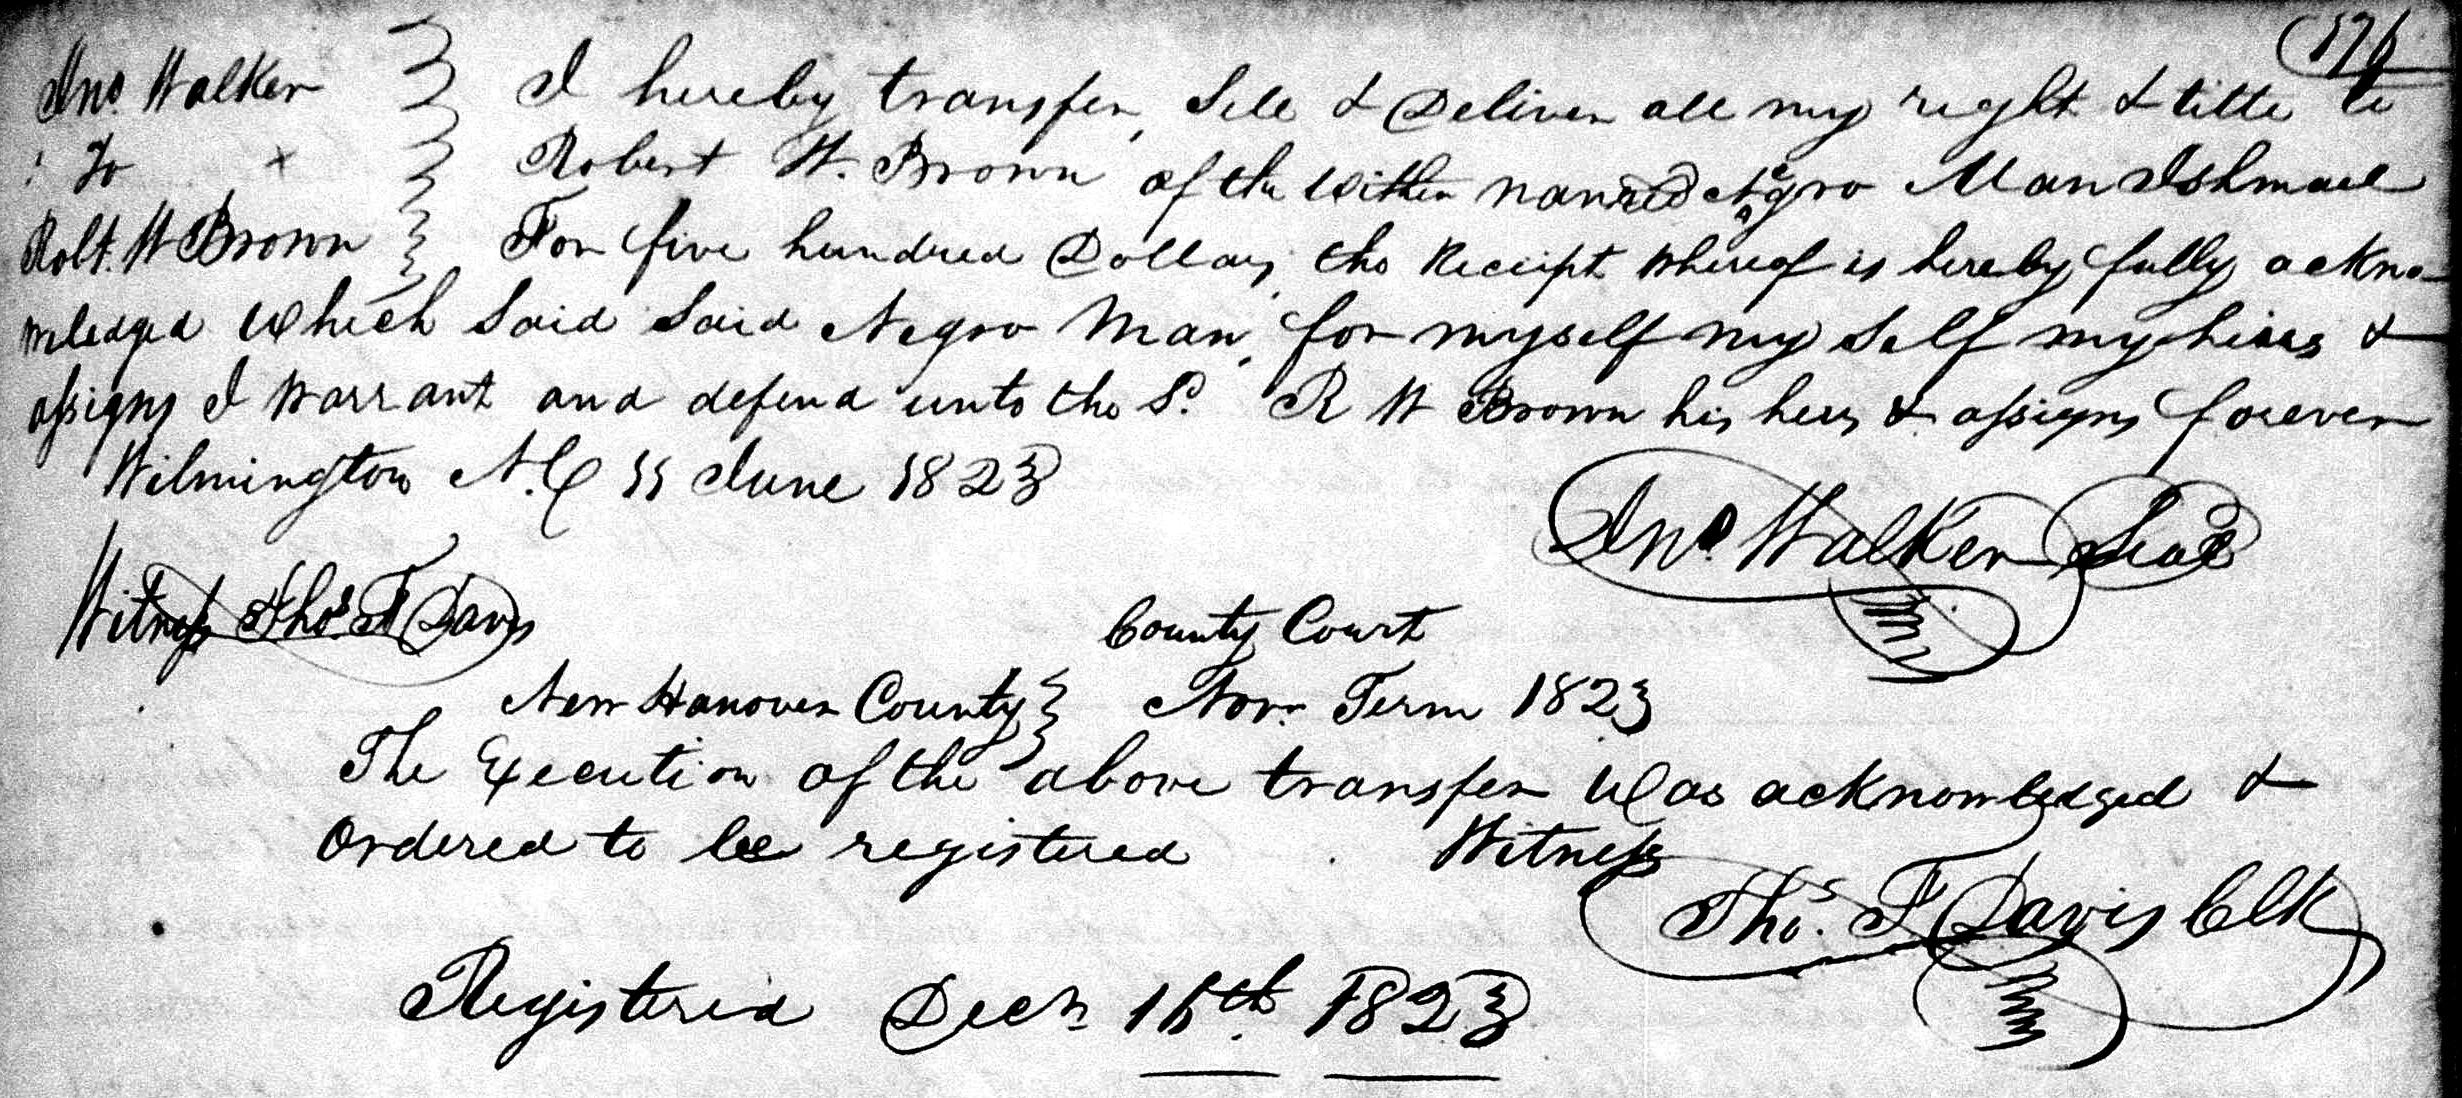 176
Jno. Walker } I hereby transfer, Sell & Deliver all my right & title to
: To x } Robert W. Brown of the within named Negro Man Ishmael
Robt. W Brown } For five hundred Dollars, the Receipt whereof is hereby fully ackno-
wledged Which Said Said Negro Man, for myself my Self my heirs &
assigns I warrant and defend unto the Sd. R W Brown his heirs & assigns forever
Wilmington N.C 11 June 1823
Jno. Walker Seal
Witness Thos. F Davis
County Court
New Hanover County } Novr. Term 1823
The Execution of the above transfer Was acknowledged &
Ordered to be registered Witness
Thos. F Davis Clk
Registered Decr. 15th. 1823